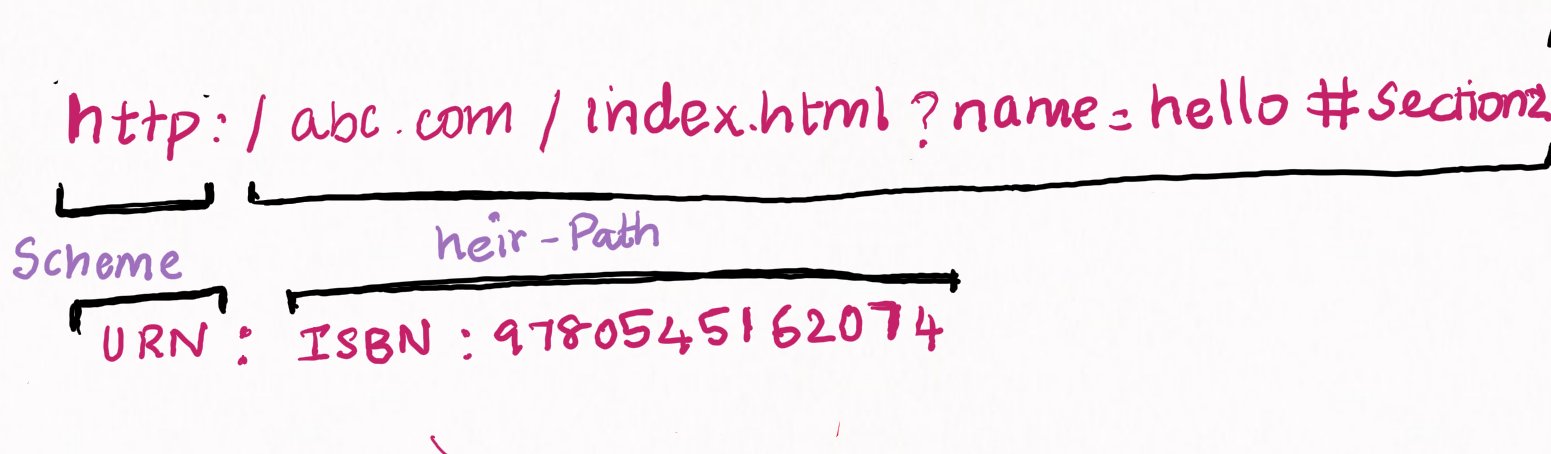 http:/ abc.com / index.html ? name = hello # Section2
Scheme heir-Path
URN : ISBN : 9780545162074